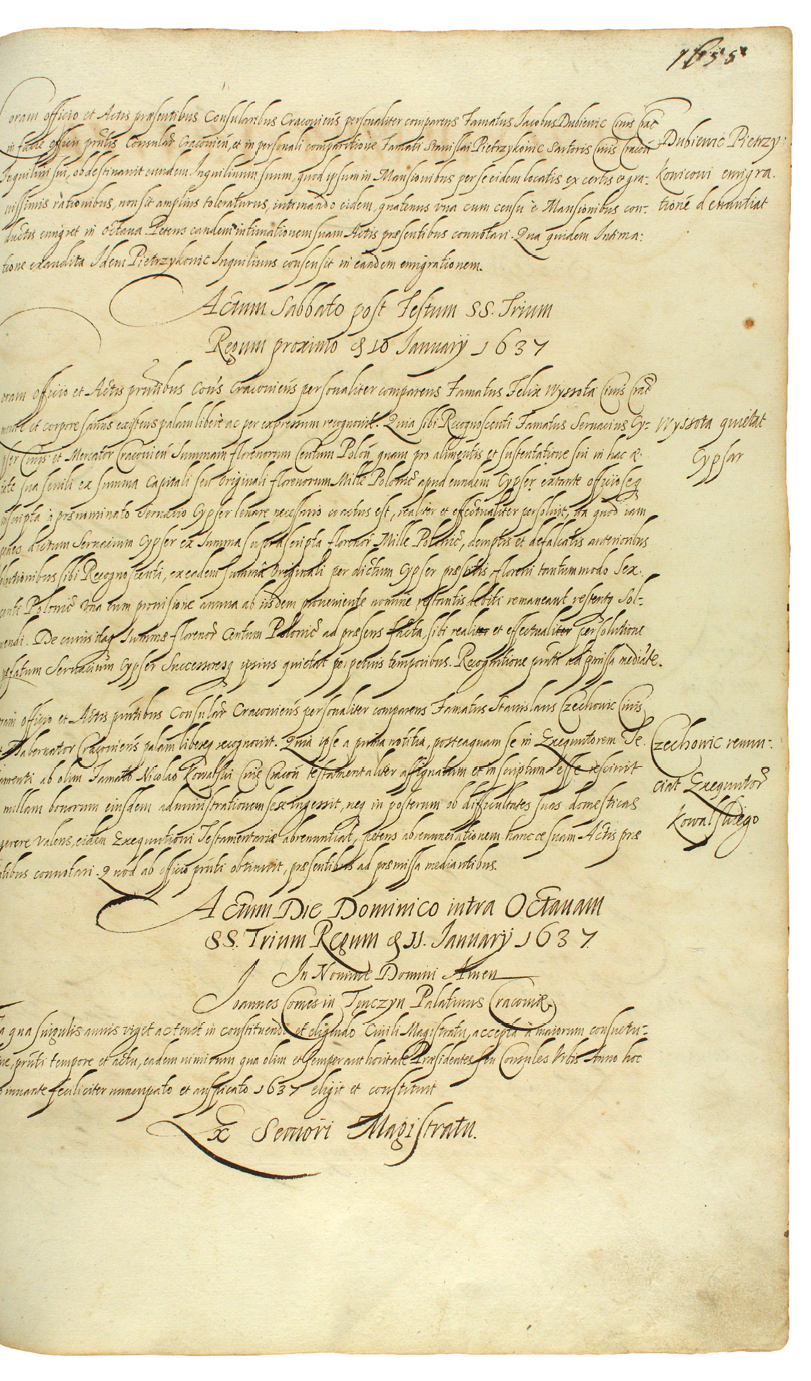 1655
oram officio et Actis præsentibus Consularibus Cracoviens personaliter comparens Famatus Jacobus Dubievic Civis Crac
in facie officii prntis Consular Cracovien, et in personali comparitione Famati Stanislai Pietrzykovic Sartoris Civis Cracovi
Inquilini sui, obdestinavit eundem Inquilinum suum, quod ipsum in Mansionibus per se eidem locatis ex certis et gra-
vissimis rationibus, non sit amplius toleraturus, intimando eidem, quatenus vna cum censu è Mansionibus con-
ductis emigret in octava. Petens eandem intimationem suam Actis præsentibus connotari. Qua quidem Intima-
tione exaudita Idem Pietrzykovic Inquilinus consensit in eandem emigrationem.
Dubievic Pietrzy-
koviconi emigra-
tionē denuntiat
Actum Sabbato post Festum SS. Trium
Regum proximo d 10 January 1637
oram officio et Actis prntibus Cons Cracoviens personaliter comparens Famatus Felix Wyssota Civis Crac
mente et corpore sanus existens palam libere ac per expressum recognovit. Quia sibi Recognoscenti Famatus Servacius Gy-
pser Civis et Mercator Cracovien Summam florenorum Centum Polon, quam pro alimentis et sustentatione sui in hac æ-
tate sua senili ex summa Capitali seu Originali florenorum Mille Polonic apud eundem Gypser extante officioseq
inscripta à prænominato Servacio Gypser levare necessario coactus est, realiter et effectualiter persolvit, ita quod iam
apud dictum Servacium Gypser ex Summa suprascripta florenor Mille Polonic, demptis et defalcatis anterioribus
solutionibus sibi Recognoscenti, ex eadem summa Originali per dictum Gypser præstitis floreni tantummodo Sex-
centi Polonic vna cum provisione annua ab iisdem proveniente nomine restantis debiti remaneant restentq Sol-
vendi. De cuius itaq Summæ florenor Centum Polonic ad præsens facta, sibi realiter et effectualiter persolutione
præfatum Servacium Gypser Successoresq ipsius quietat perpetuis temporibus. Recognitione prnti ad præmissa mediāte.
Wyssota quietat
Gypser
oram officio et Actis prntibus Consular Cracoviens personaliter comparens Famatus Stanislaus Czechovic Civis
et Tabernator Cracoviens palam libereq recognovit. Quia ipse a prima notitia, posteaquam se in Exequutorem Te-
stamenti ab olim Famato Nicolao Kowalski Cive Cracov testamentaliter assignatum et inscriptum esse rescivit
nullam bonorum eiusdem administrationem sese ingessit, neq in posterum ob difficultates suas domesticas
gerere valens, eidem Exequutioni Testamentariæ abrenuntiat, petens abrenunciationem hancce suam Actis præ-
sentibus connotari. Quod ab officio prnti obtinuit, præsentibus ad præmissa mediantibus.
Czechovic renun-
ciat Exequutorē
Kowalskiego
Actum Die Dominico intra Octavam
SS. Trium Regum d 11. January 1637
In Nomine Domini Amen
Joannes Comes in Tenczyn Palatinus Cracoviæ
a qua singulis annis viget ac tenet in constituendo et eligendo Civili Magistratu, accepta a maiorum consuetu-
ne, prnti tempore et actu, eadem nimirum qua olim et semper authoritate Præsidentes seu Consules Urbis Anno hoc
feliciter nuncupato et auspicato 1637 eligit et constituit
Ex Seniori Magistratu.